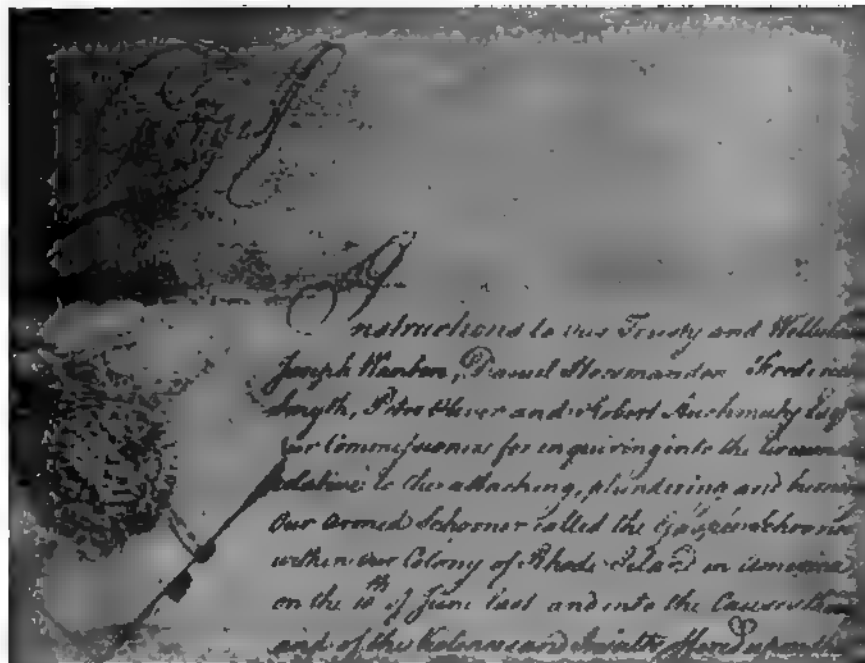 Instructions to our Trusty and Wellbelov
Joseph Wanton, Daniel Horsmanden Frederick
Smyth, Peter Oliver and Robert Auchmuty Esqr
our Commissioners for enquiring into the Circums
relative to the attacking, plundering and burning
Our armed Schooner called the Gaspee Schooner
within our Colony of Rhode Island in America
on the 10th of June last and into the
and of the and